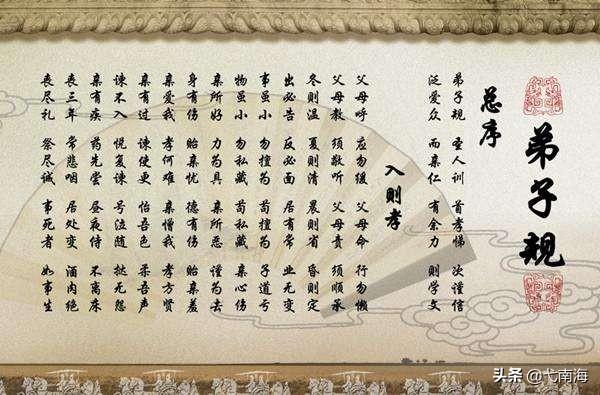 弟子规
总序
弟子规 圣人训 首孝悌 次谨信
泛爱众 而亲仁 有余力 则学文
入则孝
父母呼 应勿缓 父母命 行勿懒
父母教 须敬听 父母责 须顺承
冬则温 夏则清 晨则省 昏则定
出必告 反必面 居有常 业无变
事虽小 勿擅为 苟擅为 子道亏
物虽小 勿私藏 苟私藏 亲心伤
亲所好 力为具 亲所恶 谨为去
身有伤 贻亲忧 德有伤 贻亲羞
亲爱我 孝何难 亲憎我 孝方贤
亲有过 谏使更 怡吾色 柔吾声
谏不入 悦复谏 号泣随 挞无怨
亲有疾 药先尝 昼夜侍 不离床
丧三年 常悲咽 居处变 酒肉绝
丧尽礼 祭尽诚 事死者 如事生
头条 @弋南海